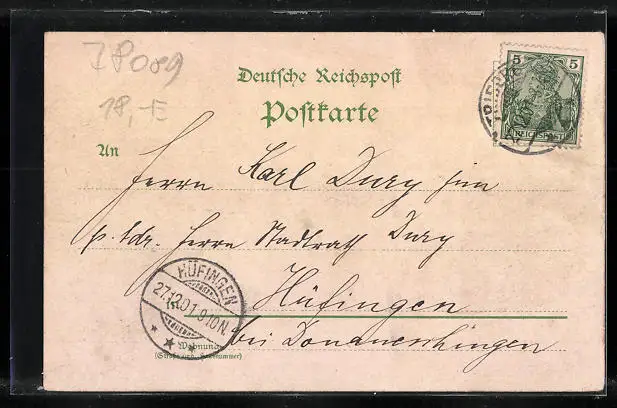 JP089
18,-E
Deutsche Reichspost
Postkarte
5 5
REICHSPOST
An
Herrn Karl Dury jun
p. Adr. Herrn Stadtrath Dury
Hüfingen
bei Donaueschingen
HÜFINGEN
27.12.01.9-10N.
Wohnung
(Straße und Hausnummer)